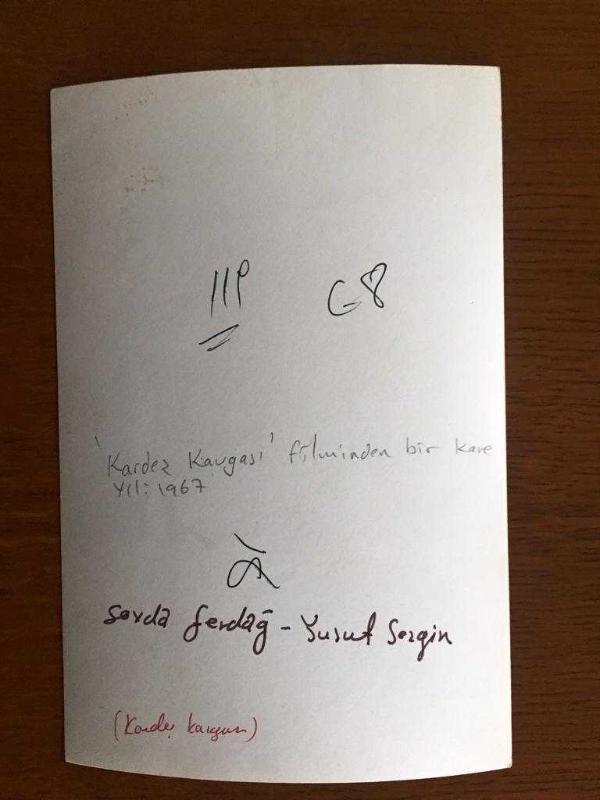 11P G8
'Kardeş Kavgası' filminden bir kare
Yıl: 1967
Sevda Ferdağ - Yusuf Sezgin
(Kardeş kavgası)